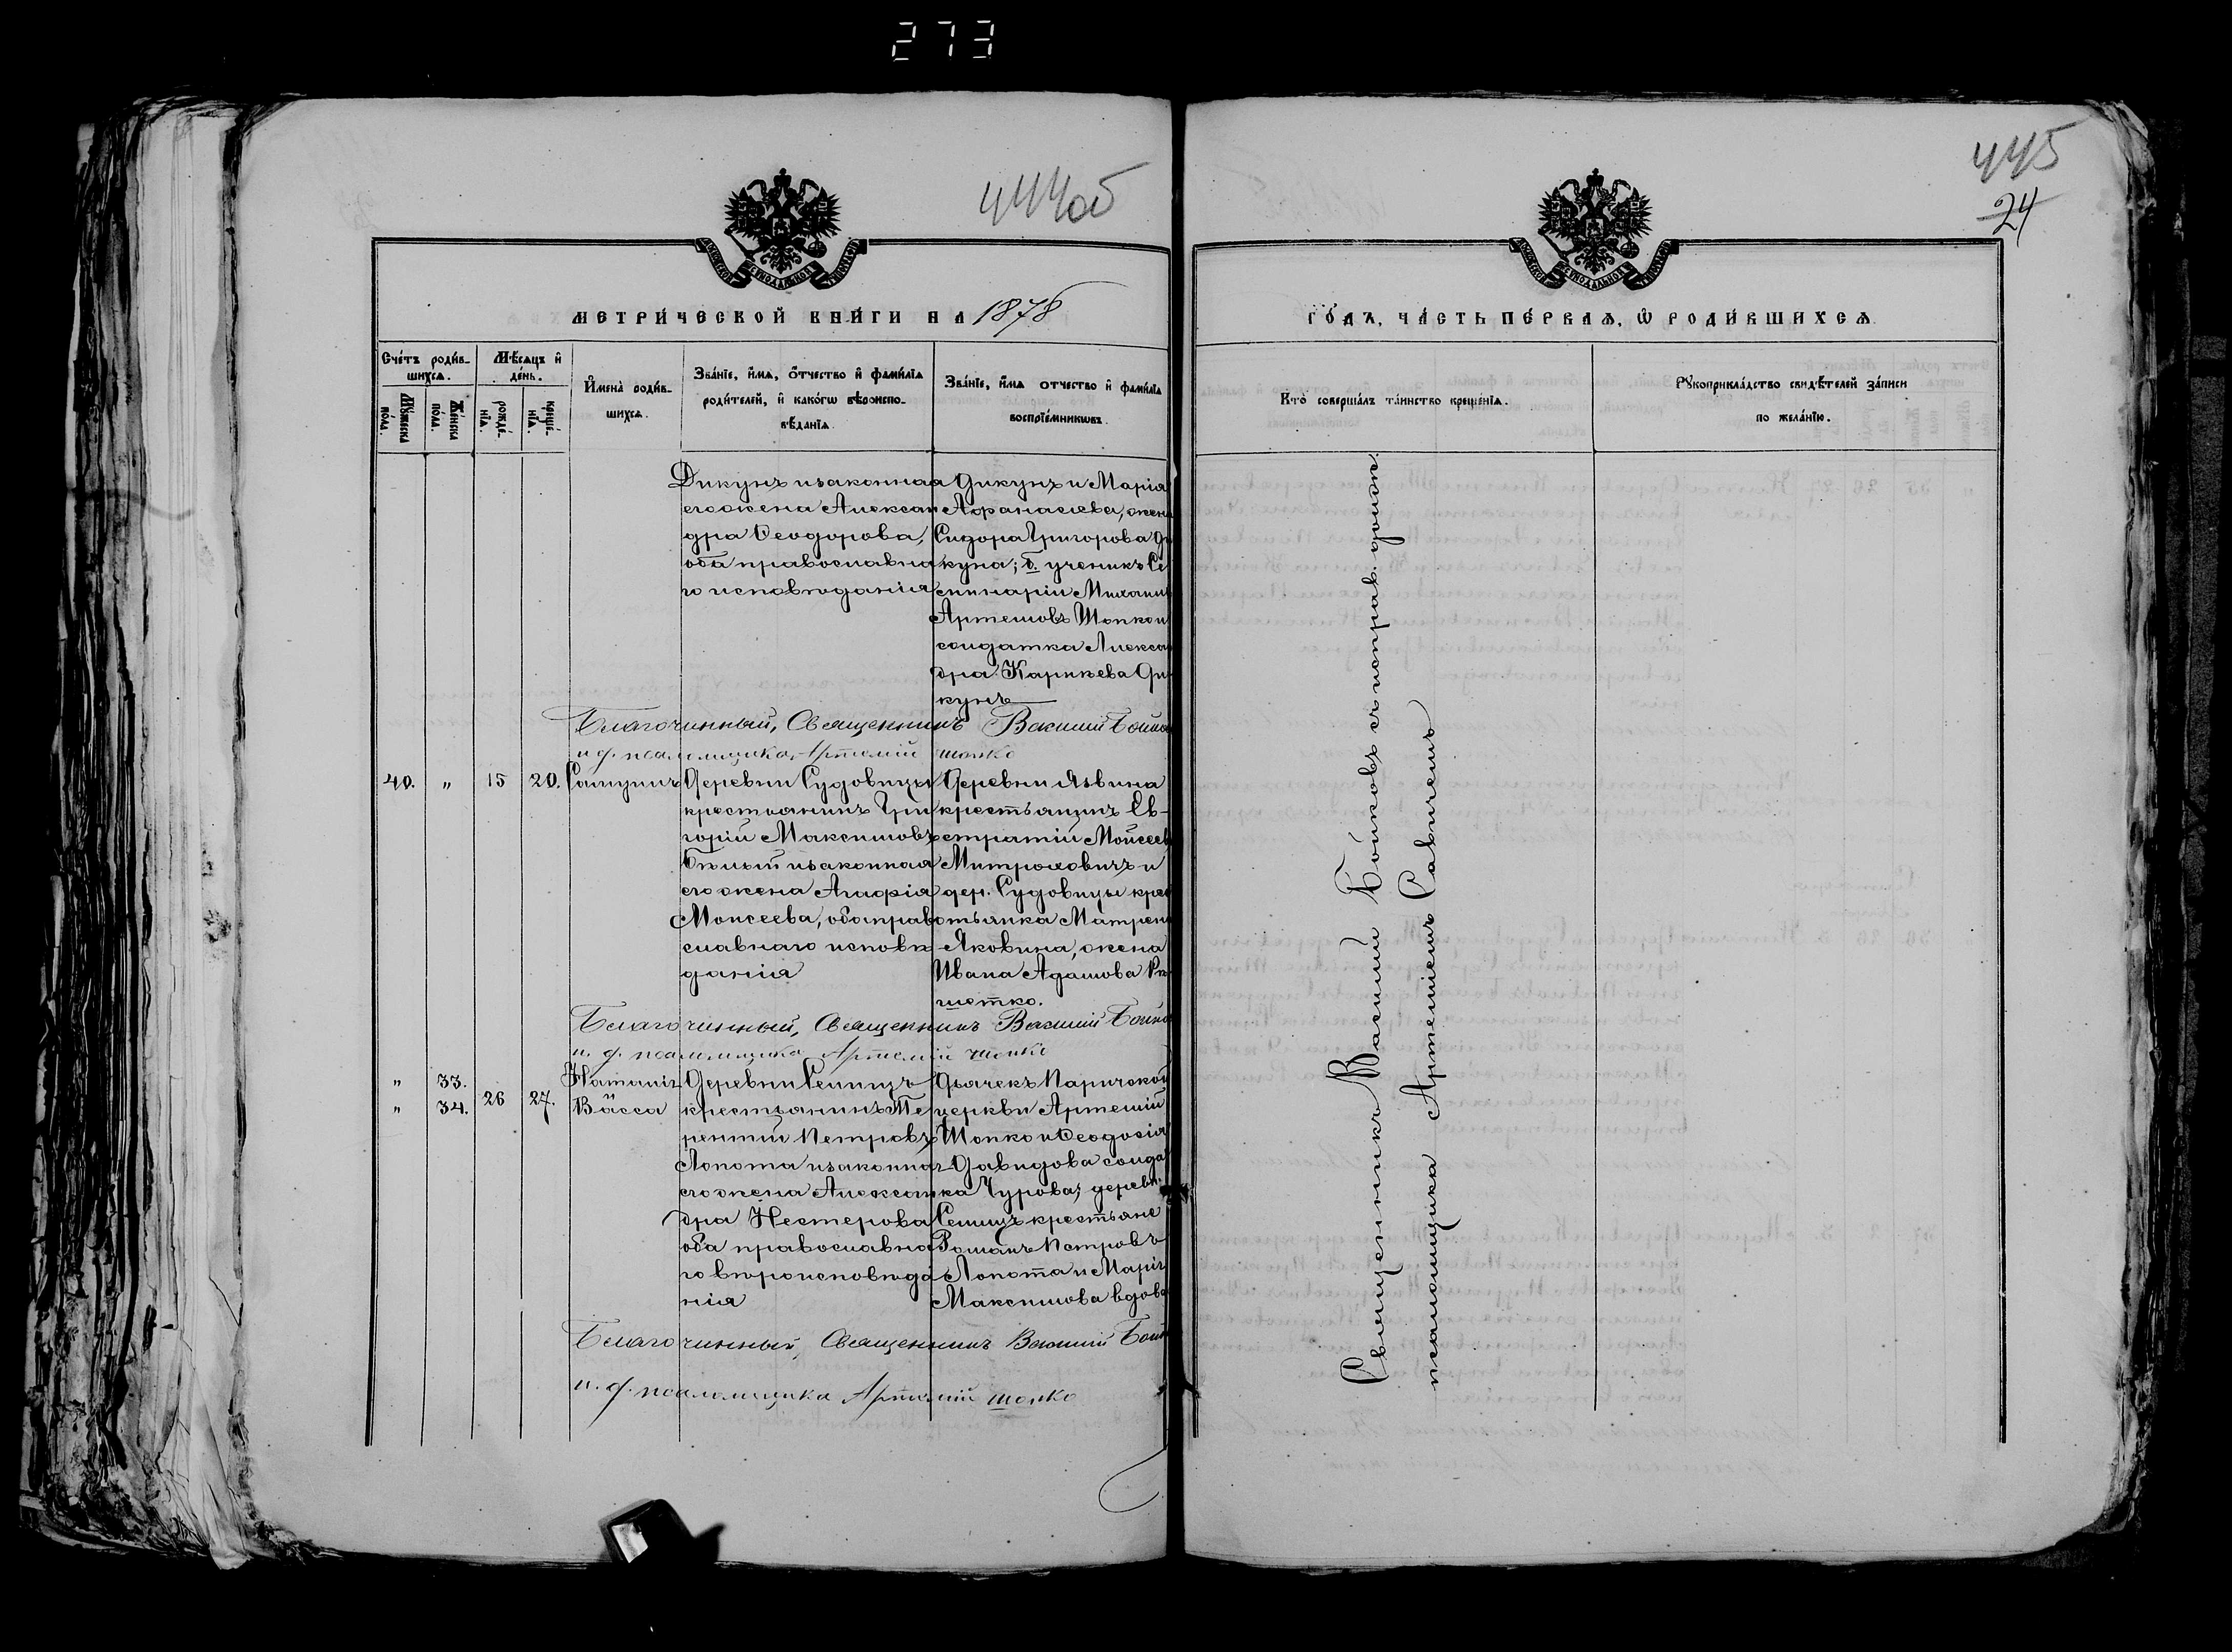 273
444об
445
24
МЕТРИЧЕСКОЙ КНИГИ НА 1878
ГОДЪ, ЧАСТЬ ПЕРВАЯ, Ѡ РОДИВШИХСЯ
Счетъ родив-
шихся.
Мѣсяцъ и
день.
Мужеска
пола.
Женска
пола.
рожде-
нія.
креще-
нія.
Имена родив-
шихся.
Званіе, имя, отчество и фамилія
родителей, и какогѡ вѣроиспо-
вѣданія.
Званіе, имя отчество и фамилія
воспріемникѡвъ.
Кто совершалъ таинство крещенія.
Рукоприкладство свидѣтелей записи
по желанію.
Дикунъ и законная
его жена Алексан
дра Ѳеодорова,
оба православна
го исповѣданія
Дикунъ и Марія
Аѳанасіева, жена
Сидора Григорова Ди
куна; б. ученикъ Се
минаріи Михаил
Артемовъ Шопко и
солдатка Алексан
дра Карпѣева Ди
кунъ
Благочинный, Священникъ Василій Бойко
и. д. псаломщика Артемій Шопко
40. " 15 20. Самуилъ
Деревни Судовицы
крестьянинъ Гри
горій Максимовъ
Бѣлый и законная
его жена Агафія
Моисеева, оба право
славнаго исповѣ
данія
Деревни Язвина
крестьянинъ Ев-
стратій Мойсеев
Митроховичъ и
дер. Судовицы крес
тьянка Матрена
Яковлина, жена
Ивана Адамова Рѣ
шетко.
Благочинный, Священникъ Василій Бойко
и. д. псаломщика Артемій Шопко
" 33. Наталія
" 34. 26 27. Васса
Деревни Селищъ
крестьянинъ Те
рентій Петровъ
Лопота и законная
его жена Алексан
дра Нестерова
оба православна
го вѣроисповѣда
нія
Дьячекъ Паричской
церкви Артемій
Шопко и Ѳеодосія
Давидова солдат
ка Чурова; деревни
Селищъ крестьяне
Романъ Петровъ
Лопота и Марія
Максимова вдова
Благочинный, Священникъ Василій Бойко
и. д. псаломщика Артемій Шопко
Священникъ Василій Бойковъ съ исправ. долж.
псаломщика Артеміемъ Савичемъ